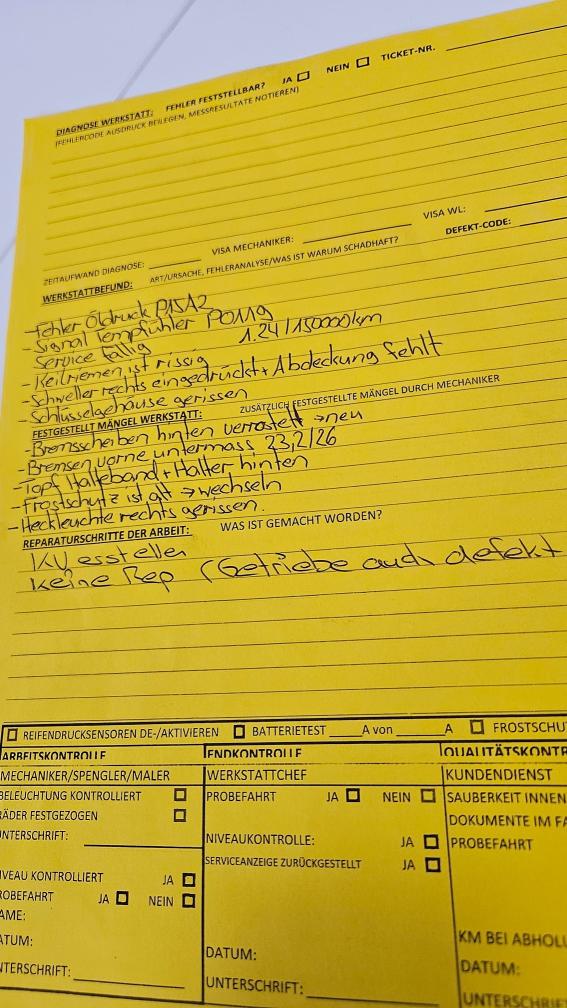 DIAGNOSE WERKSTATT: FEHLER FESTSTELLBAR? JA NEIN TICKET-NR.
(FEHLERCODE AUSDRUCK BEILEGEN, MESSRESULTATE NOTIEREN)
ZEITAUFWAND DIAGNOSE: VISA MECHANIKER: VISA WL:
WERKSTATTBEFUND: ART/URSACHE, FEHLERANALYSE/WAS IST WARUM SCHADHAFT? DEFEKT-CODE:
-Fehler Öldruck P15A2
-Signal Tempfühler P0119
Service fällig 1.24/150000km
-Keilriemen ist rissig
-Schweller rechts eingedrückt + Abdeckung fehlt
-Schlüsselgehäuse gerissen
FESTGESTELLT MÄNGEL WERKSTATT: ZUSÄTZLICH FESTGESTELLTE MÄNGEL DURCH MECHANIKER
-Bremsscheiben hinten verrostett → neu
-Bremsen vorne untermass 23,2/26
-Topf Halteband + Halter hinten
-Frostschutz ist alt → wechseln
-Heckleuchte rechts gerissen.
REPARATURSCHRITTE DER ARBEIT: WAS IST GEMACHT WORDEN?
KV esstellen
Keine Rep (Getriebe auch defekt
REIFENDRUCKSENSOREN DE-/AKTIVIEREN BATTERIETEST A von A FROSTSCHU
ARBEITSKONTROLLE ENDKONTROLLE QUALITÄTSKONTR
MECHANIKER/SPENGLER/MALER WERKSTATTCHEF KUNDENDIENST
BELEUCHTUNG KONTROLLIERT PROBEFAHRT JA NEIN SAUBERKEIT INNEN
RÄDER FESTGEZOGEN DOKUMENTE IM FA
UNTERSCHRIFT: NIVEAUKONTROLLE: JA PROBEFAHRT
SERVICEANZEIGE ZURÜCKGESTELLT JA
VEAU KONTROLLIERT JA
ROBEFAHRT JA NEIN
AME:
ATUM: KM BEI ABHOLU
DATUM: DATUM:
NTERSCHRIFT: UNTERSCHRIFT: UNTERSCHRI